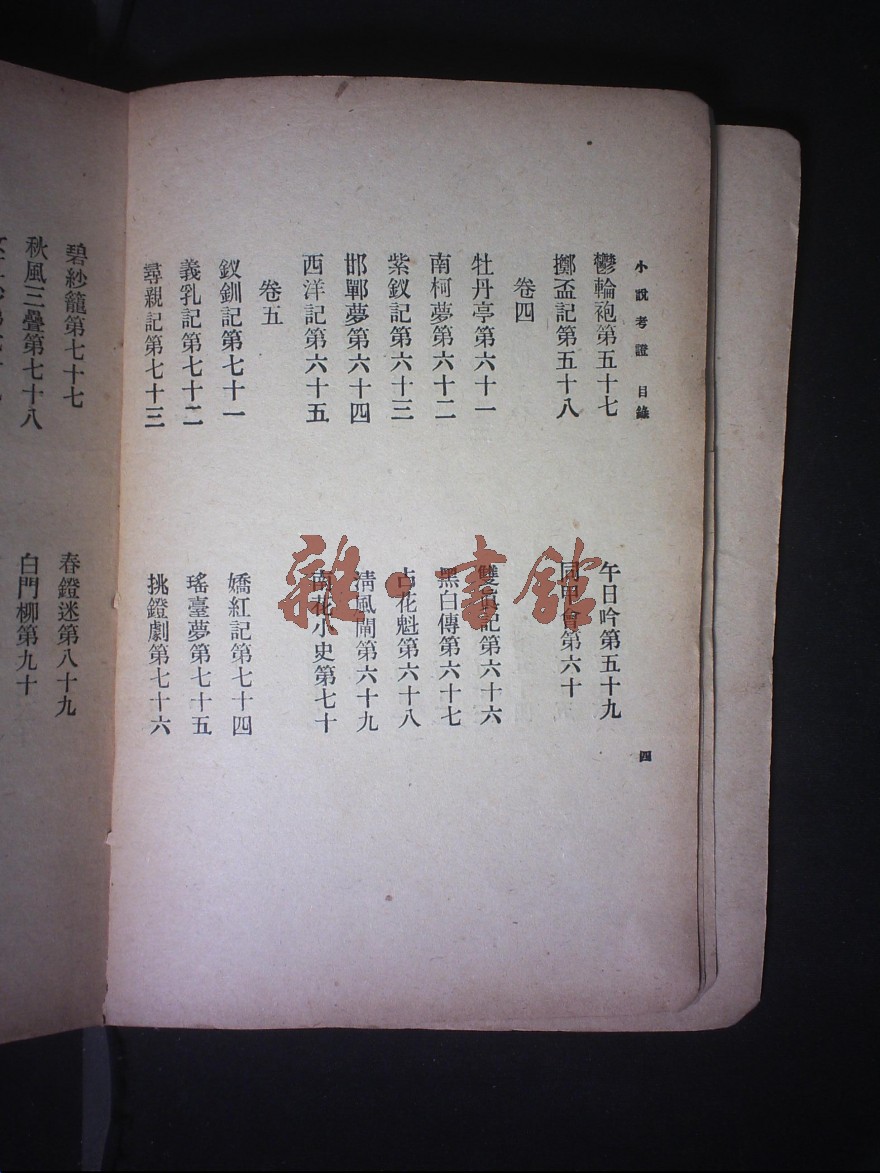 小說考證 目錄
四
鬱輪袍第五十七
午日吟第五十九
擲盃記第五十八
同甲會第六十
卷四
牡丹亭第六十一
雙眞記第六十六
南柯夢第六十二
黑白傳第六十七
紫釵記第六十三
占花魁第六十八
邯鄲夢第六十四
淸風閘第六十九
西洋記第六十五
南花小史第七十
卷五
釵釧記第七十一
嬌紅記第七十四
義乳記第七十二
瑤臺夢第七十五
尋親記第七十三
挑鐙劇第七十六
碧紗籠第七十七
春鐙迷第八十九
秋風三疊第七十八
白門柳第九十
雜·書館